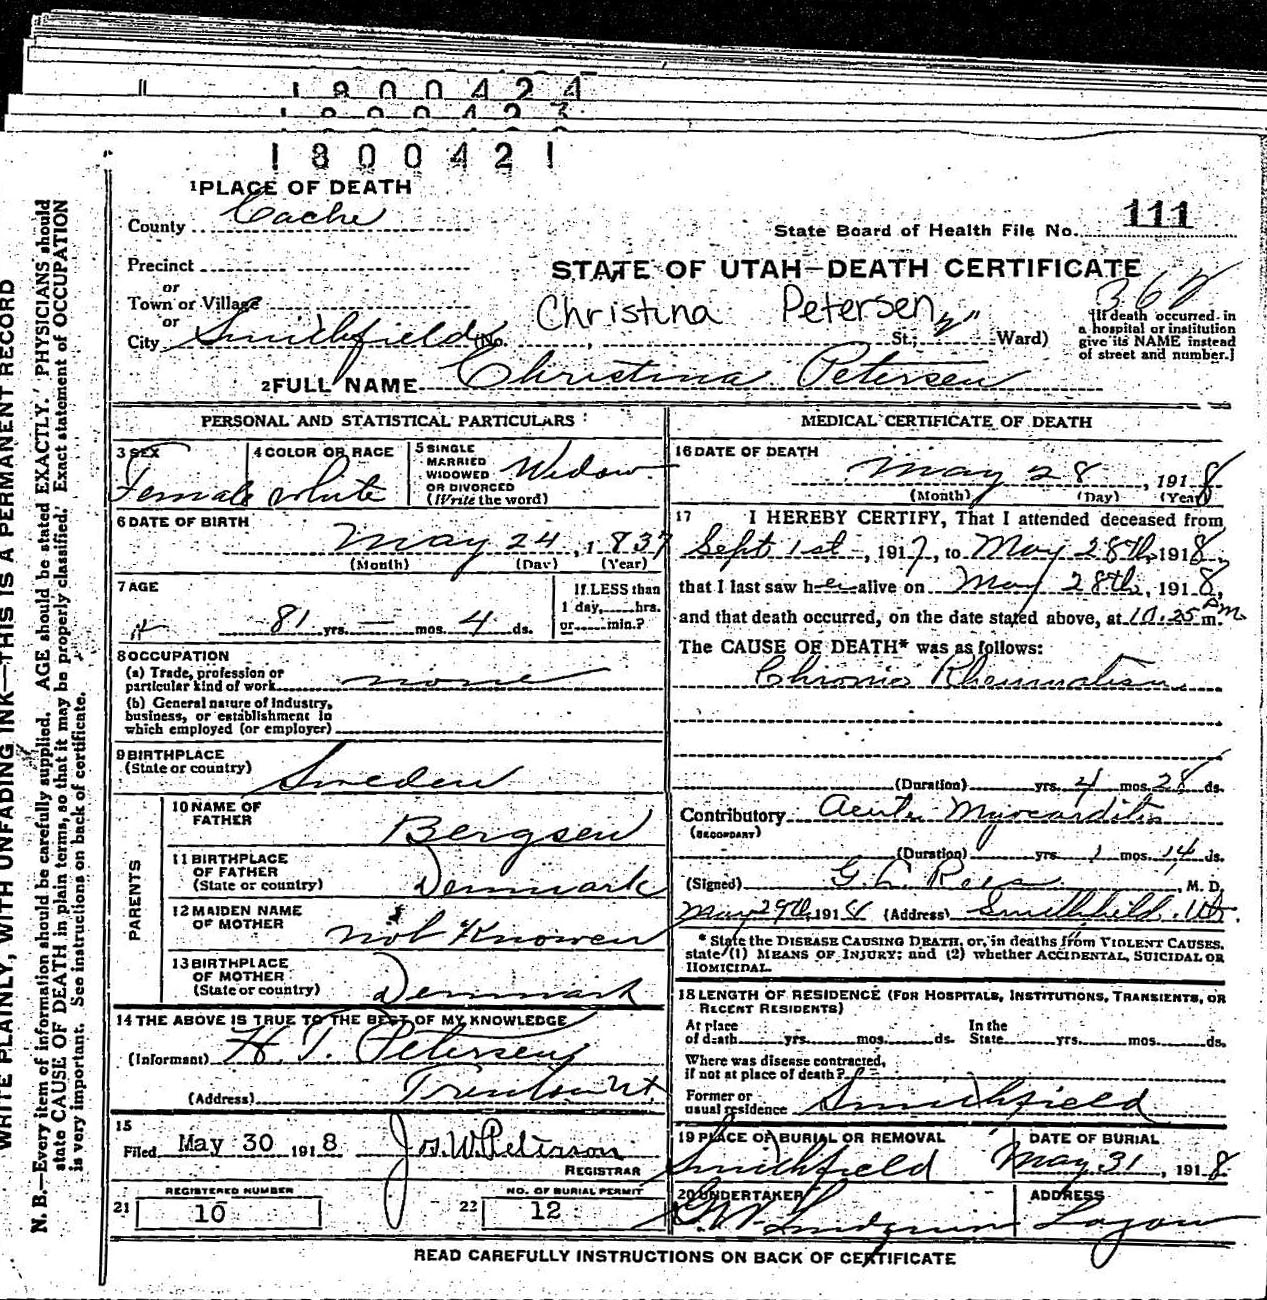 1900424
1800423
1800421
1 PLACE OF DEATH
County Cache
State Board of Health File No. 111
Precinct
or
Town or Village
or
City Smithfield (No. , St.; Ward)
STATE OF UTAH—DEATH CERTIFICATE
Christina Petersen
362
[If death occurred in a hospital or institution give its NAME instead of street and number.]
2 FULL NAME Christina Petersen
PERSONAL AND STATISTICAL PARTICULARS
3 SEX Female
4 COLOR OR RACE White
5 SINGLE MARRIED WIDOWED OR DIVORCED (Write the word) Widow
6 DATE OF BIRTH
May 24, 1837
(Month) (Day) (Year)
7 AGE
81 yrs. — mos. 4 ds.
If LESS than 1 day, hrs. or min.?
8 OCCUPATION
(a) Trade, profession or particular kind of work none
(b) General nature of Industry, business, or establishment in which employed (or employer)
9 BIRTHPLACE
(State or country) Sweden
PARENTS
10 NAME OF FATHER Bergsen
11 BIRTHPLACE OF FATHER (State or country) Denmark
12 MAIDEN NAME OF MOTHER not Knowen
13 BIRTHPLACE OF MOTHER (State or country) Denmark
14 THE ABOVE IS TRUE TO THE BEST OF MY KNOWLEDGE
(Informant) H. T. Petersen
(Address) Trenton Ut
15
Filed May 30 1918 Jos. W. Peterson
REGISTRAR
REGISTERED NUMBER
21 10
NO. OF BURIAL PERMIT
22 12
MEDICAL CERTIFICATE OF DEATH
16 DATE OF DEATH
May 28, 1918
(Month) (Day) (Year)
17 I HEREBY CERTIFY, That I attended deceased from
Sept 1st, 1917, to May 28th, 1918,
that I last saw her alive on May 28th, 1918,
and that death occurred, on the date stated above, at 10.25 PM m.
The CAUSE OF DEATH* was as follows:
Chronic Rheumatism
(Duration) yrs. 4 mos. 28 ds.
Contributory Acute Myocarditis
(SECONDARY)
(Duration) yrs. 1 mos. 14 ds.
(Signed) G. L. Rees, M. D.
May 29th, 1918 (Address) Smithfield, Ut.
* State the DISEASE CAUSING DEATH, or, in deaths from VIOLENT CAUSES, state (1) MEANS OF INJURY; and (2) whether ACCIDENTAL, SUICIDAL OR HOMICIDAL.
18 LENGTH OF RESIDENCE (FOR HOSPITALS, INSTITUTIONS, TRANSIENTS, OR RECENT RESIDENTS)
At place of death yrs. mos. ds. In the State yrs. mos. ds.
Where was disease contracted, if not at place of death?
Former or usual residence Smithfield
19 PLACE OF BURIAL OR REMOVAL Smithfield
DATE OF BURIAL May 31, 1918
20 UNDERTAKER G. W.
ADDRESS Logan
READ CAREFULLY INSTRUCTIONS ON BACK OF CERTIFICATE
WRITE PLAINLY, WITH UNFADING INK—THIS IS A PERMANENT RECORD
N. B.—Every item of information should be carefully supplied. AGE should be stated EXACTLY. PHYSICIANS should
state CAUSE OF DEATH in plain terms, so that it may be properly classified. Exact statement of OCCUPATION
is very important. See instructions on back of certificate.